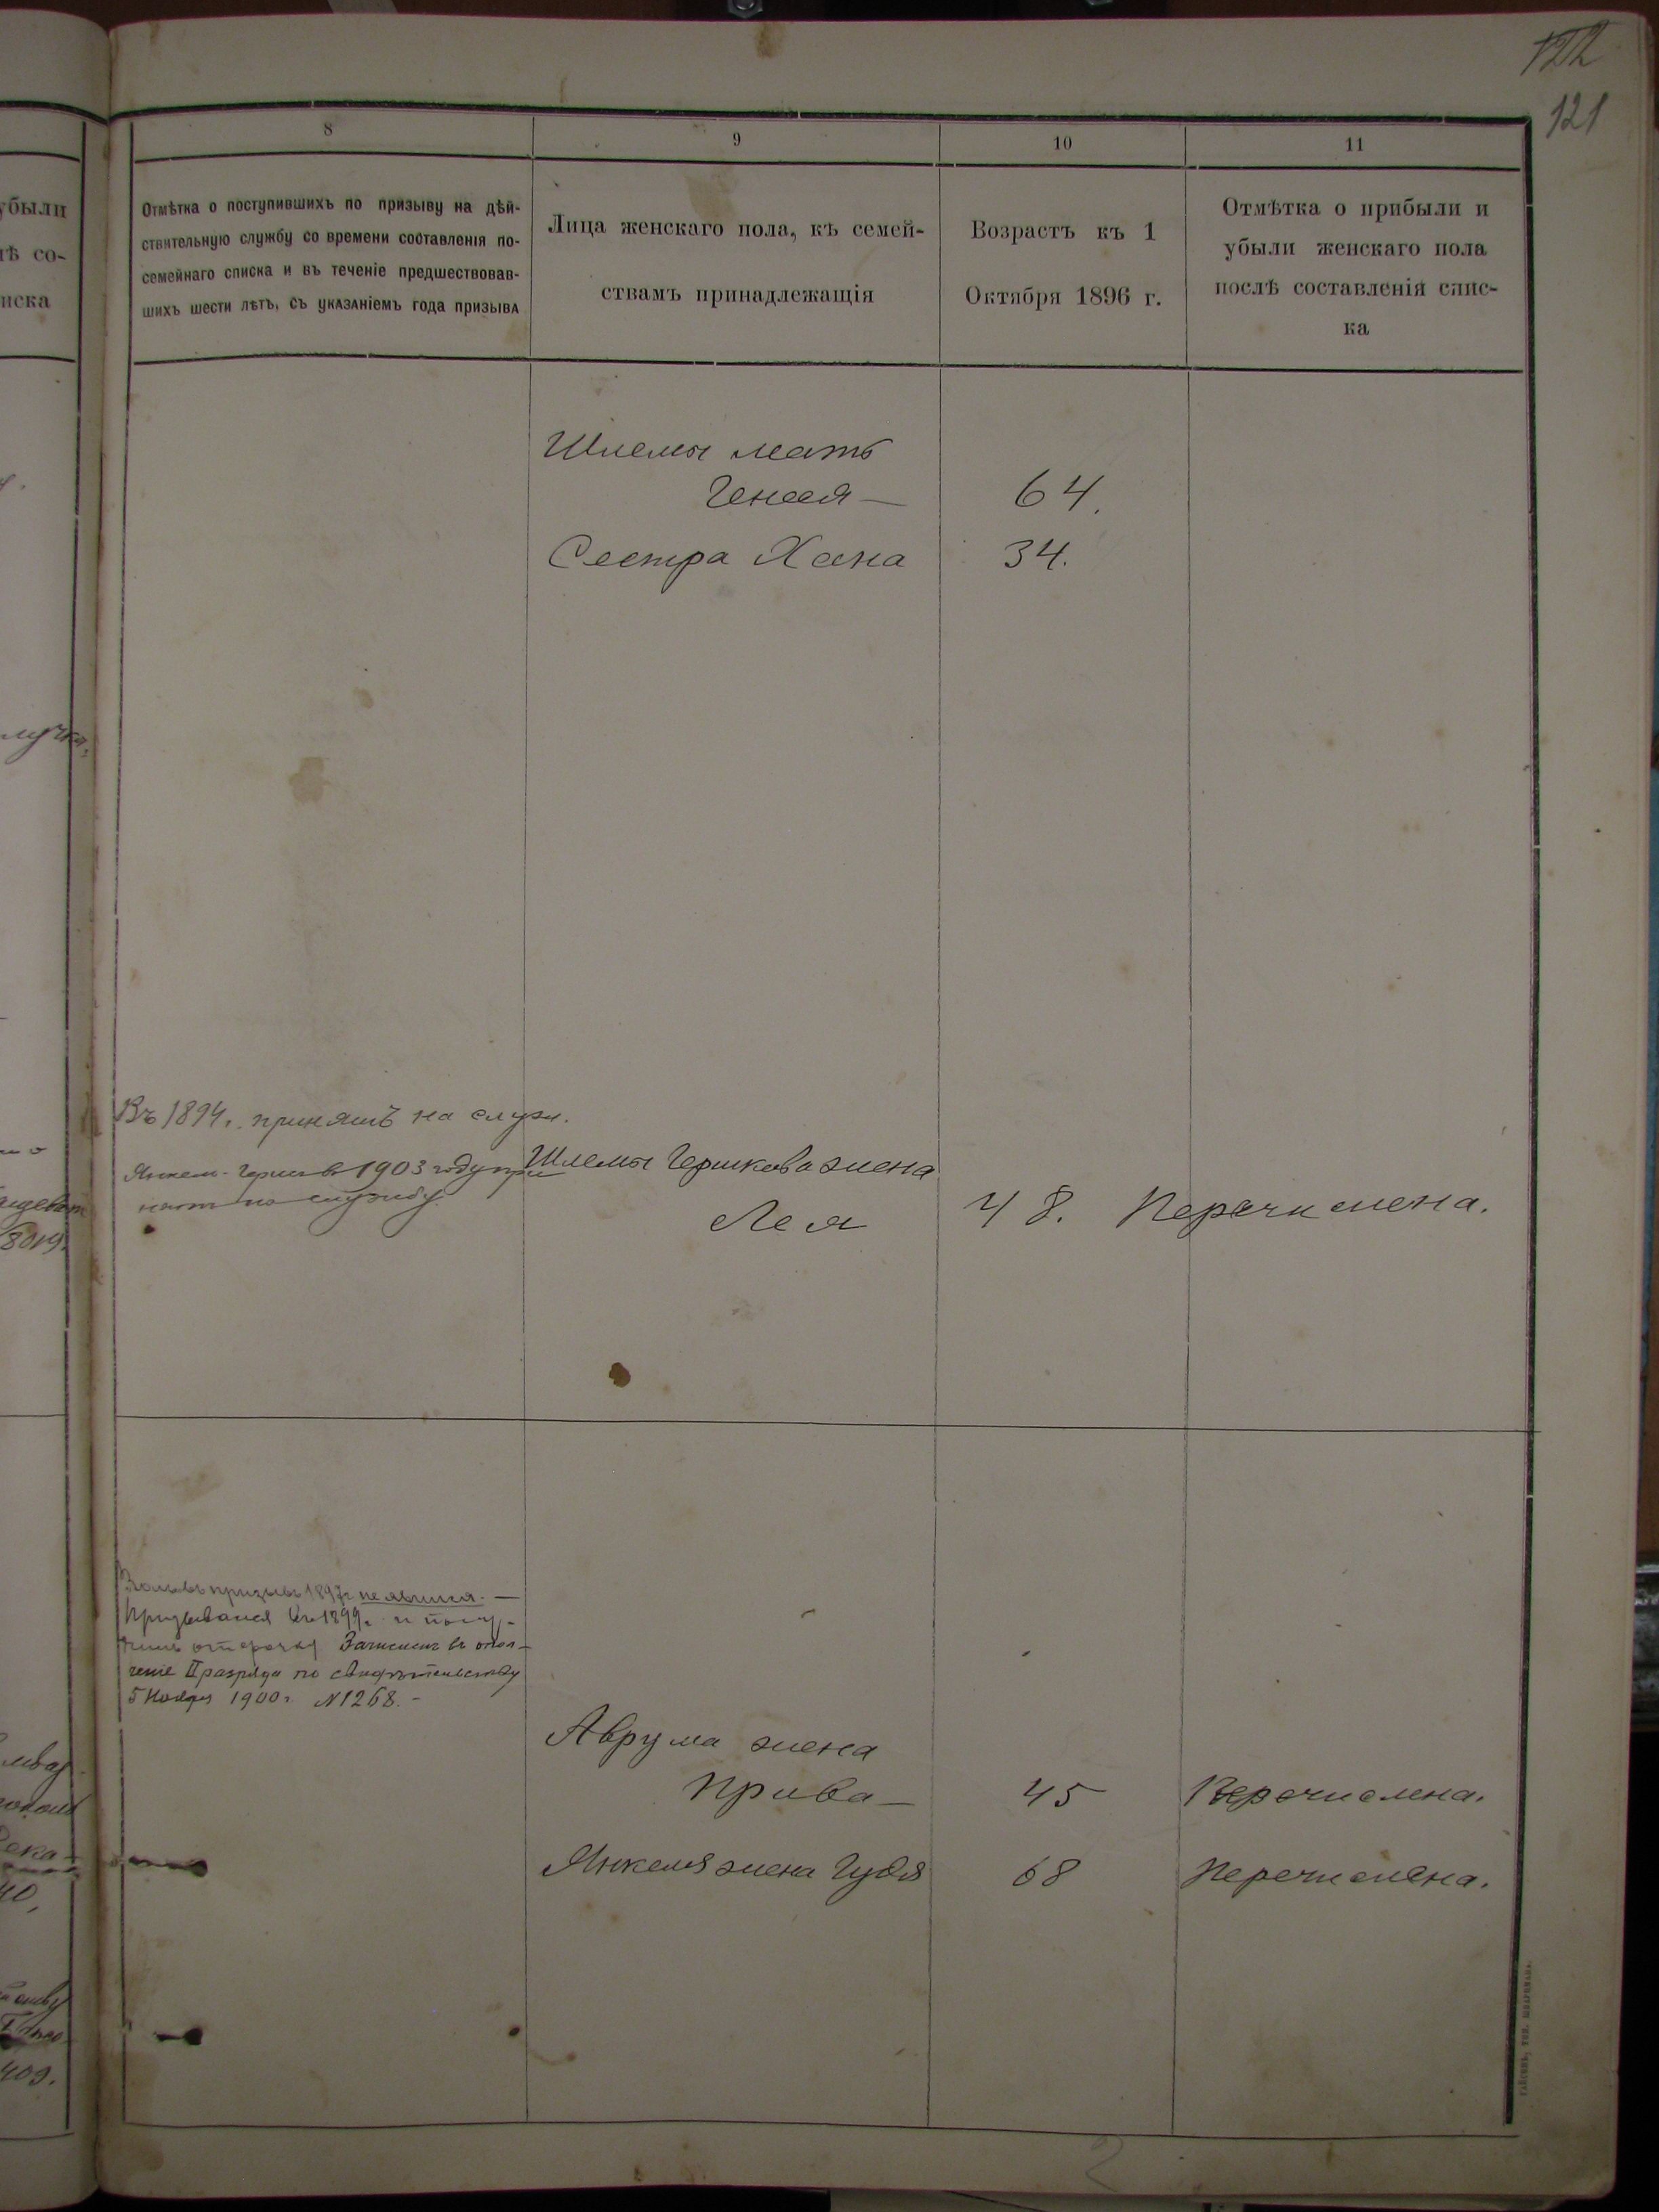 122
121
8
9
10
11
Отмѣтка о поступившихъ по призыву на дѣй-
ствительную службу со времени составленія по-
семейнаго списка и въ теченіе предшествовав-
шихъ шести лѣтъ, съ указаніемъ года призыва
Лица женскаго пола, къ семей-
ствамъ принадлежащія
Возрастъ къ 1
Октября 1896 г.
Отмѣтка о прибыли и
убыли женскаго пола
послѣ составленія спис-
ка
убыли
со-
Шлемы мать
Генся — 64.
Сестра Хана 34.
Въ 1894 г. принятъ на служ.
1903 году при
нят на службу.
Шлемы Гершкова жена
Лея 48. Перечислена.
призывъ 1897 г не явился. —
Призывался въ 1899 г. и полу-
чилъ отсрочку Зачисленъ въ опол-
ченіе II разряда по свидѣтельству
5 Ноября 1900 г. № 1268. -
Аврума жена
Прива — 45 Перечислена.
Янкеля жена Гудя 68 Перечислена.